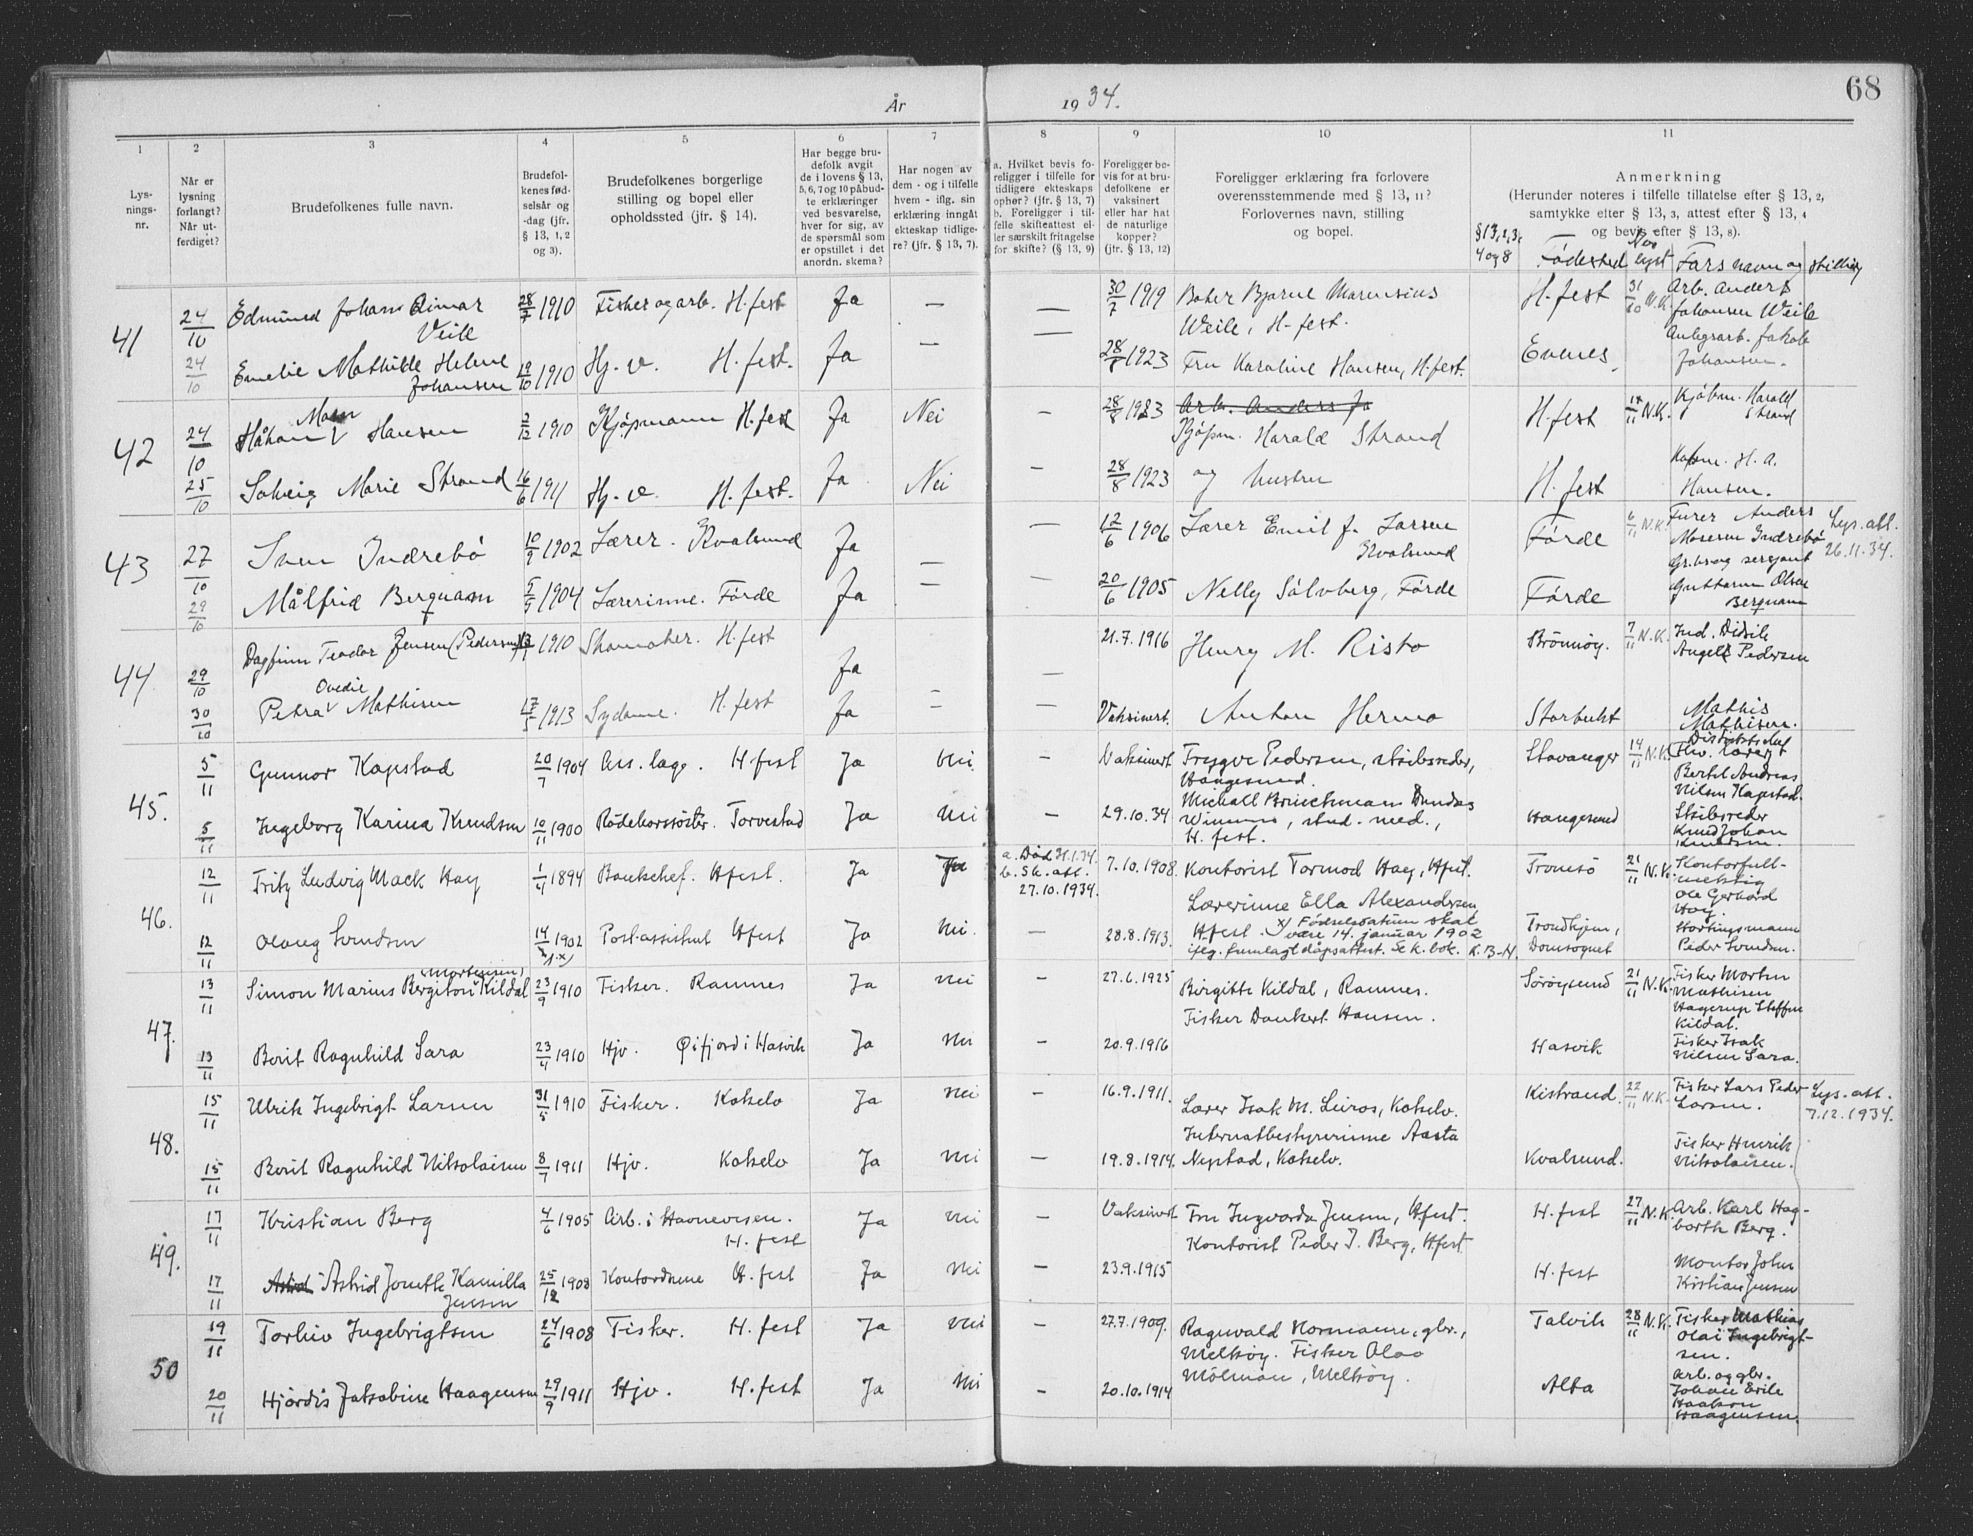 År 1934.
68
1 2 3 4 5 6 7 8 9 10 11
Lys-
nings-
nr.
Når er
lysning
forlangt?
Når ut-
ferdiget?
Brudefolkenes fulle navn.
Brudefol-
kenes fød-
selsår og
-dag (jfr.
§ 13, 1, 2
og 3).
Brudefolkenes borgerlige
stilling og bopel eller
opholdssted (jfr. § 14).
Har begge bru-
defolk avgit
de i lovens § 13,
5, 6, 7 og 10 påbud-
te erklæringer
ved besvarelse,
hver for sig, av
de spørsmål som
er opstillet i det
anordn. skema?
Har nogen av
dem - og i tilfelle
hvem - iflg. sin
erklæring inngått
ekteskap tidlige-
re? (jfr. § 13, 7).
a. Hvilket bevis fo-
religger i tilfelle for
tidligere ekteskaps
ophør? (jfr. § 13, 7)
b. Foreligger i til-
felle skifteattest el-
ler særskilt fritagelse
for skifte? (§ 13, 9)
Foreligger be-
vis for at bru-
defolkene er
vaksinert
eller har hat
de naturlige
kopper?
(jfr. § 13, 12)
Foreligger erklæring fra forlovere
overensstemmende med § 13, 11?
Forlovernes navn, stilling
og bopel.
Anmerkning
(Herunder noteres i tilfelle tillatelse efter § 13, 2,
samtykke efter § 13, 3, attest efter § 13, 4
og bevis efter § 13, 8).
§13,2,3,
4 og 8
Fødested
lyst
Fars navn og stilling
41
24/10 Edmund Johans Veile 28/7 1910 Fisker og arb. H.fest Ja — — 30/7 1919 Baker Bjarne Marensius
Weile, H-fest. H.fest 31/10 N.K. Arb. Anders
Johansen Weile
24/10 Emelie Mathilde Helene
Johansen 19/10 1910 Hj.v. H.fest. Ja — — 1923 Fru Karoline Hansen, H.fest. Evenes Jakob
Johansen.
42
24/10 Håkon Hansen 2/12 1910 Kjøpmann H.fest Ja Nei — 28/8 1923 Arb. Anders Jo
Kjøpm. Harald Strand H.fest N.K. Kjøbm. Harald
Strand
25/10 Solveig Marie Strand 16/6 1911 Hj.v. H.fest. Ja Nei — 28/8 1923 og hustru H.fest H. A.
Hansen.
43
27/10 Sven Indrebö 10/9 1902 Lærer. Kvalsund Ja — — 12/6 1906 Lærer Emil J. Larsen
Kvalsund Førde 6/11 N.K. Anders
Indrebø Lys.att.
26.11.34.
29/10 Målfrid Bergnam 5/9 1904 Lærerinne. Førde Ja — — 20/6 1905 Nelly Sølvberg, Førde Førde Grbr. og sersjant
Guttorm Olsen
Bergnam
44
29/10 Dagfinn Teodor Jensen (Pedersen) 1910 Skomaker. H.fest Ja — — 21.7.1916 Henry M. Risto Brönnöy. 7/11 N.K. Ind. Didrik
Angell Pedersen
30/10 Petra Ovedie Mathisen 17/5 1913 Sydame. H.fest Ja — — Vaksinert. Anton Hermo Storbukt Mathis
Mathisen.
45.
5/11 Gunnar Kapstad 20/7 1904 Ass. læge. H.fest Ja Nei. — Vaksinert Trygve Pedersen, skibsreder,
Haugesund. Stavanger 14/11 N.K. Distriktslæge
Bertel Andreas
Nilsen Kapstad.
5/11 Ingeborg Karina Knudsen 10/11 1900 Rødekorssøster. Torvestad Ja Nei — 29.10.34. Michael Dundas
stud. med.,
H.fest. Haugesund Skibsreder
Knud Johan
Knudsen.
46.
12/11 Fritz Ludvig Mack Hay 1/4 1894 Banksjef. H.fest. Ja Ja a. Død 34.
b. Sk. att.
27.10.1934. 7.10.1908. Kontorist Tormod Hay, Hfest. Tromsö 21/11 N.K. Kontorfull-
mektig
Ole Gerhard
Hay.
12/11 Olaug Svendsen 14/ 1902 Postassistent Hfest Ja Nei. 28.8.1913. Lærerinne Ella Alexandersen
Hfest. x/ Fødselsdatum skal
være 14. januar 1902
ifølg. fremlagt dåpsattest. Se k.bok. K. B-H. Trondhjem,
Domsognet Stortingsmann
Peder Svendsen.
47.
13/11 Simon Marius Bergiton Kildal (Mortensen) 23/9 1910 Fisker. Ramnes Ja Nei — 27.6.1925 Birgitte Kildal, Ramnes.
Fisker Dankert Hansen. Sørøysund 21/11 N.K. Fisker Morten
Mathisen
Hagerup Steffen
Kildal.
13/11 Berit Ragnhild Sara 23/4 1910 Hjv. Øifjord i Hasvik Ja Nei — 20.9.1916 Hasvik Fisker Isak
Nilsen Sara.
48.
15/11 Ulrik Ingebrigt Larsen 31/5 1910 Fisker. Kokelv Ja Nei — 16.9.1911. Lærer Isak M. Kokelv. Kistrand. 22/11 N.K. Fisker Lars Peder
Larsen. Lys.att.
7.12.1934.
15/11 Berit Ragnhild Nikolaisen 8/7 1911 Hjv. Kokelv Ja Nei — 19.8.1914. Internatbestyrerinne Aasta
Nystad, Kokelv. Kvalsund. Fisker Henrik
Nikolaisen.
49.
17/11 Kristian Berg 4/6 1905 Arb. i Havnevesen.
H.fest Ja Nei — Vaksinert Fru Ingvarda Jensen, Hfest.
Kontorist Peder J. Berg, Hfest H.fest 27/11 N.K. Arb. Karl Hag-
barth Berg.
17/11 Astrid Astrid Jonette Kamilla
Jensen 25/12 1908 Kontordame H.fest Ja Nei — 23.9.1915 H.fest Montør John
Kristian Jensen
50
19/11 Torleiv Ingebrigtsen 24/6 1908 Fisker. H.fest Ja Nei — 27.7.1909. Ragnvald Normann, gbr.,
Melkøy. Fisker Olav
Talvik 28/11 N.K. Fisker Mathias
Olai Ingebrigt-
sen.
20/11 Hjørdis Jakobine Haagensen 29/9 1911 Hjv. H.fest Ja Nei — 20.10.1914 Melkøy. Alta Arb. og gbr.
Johan Erik
Haakon
Haagensen.